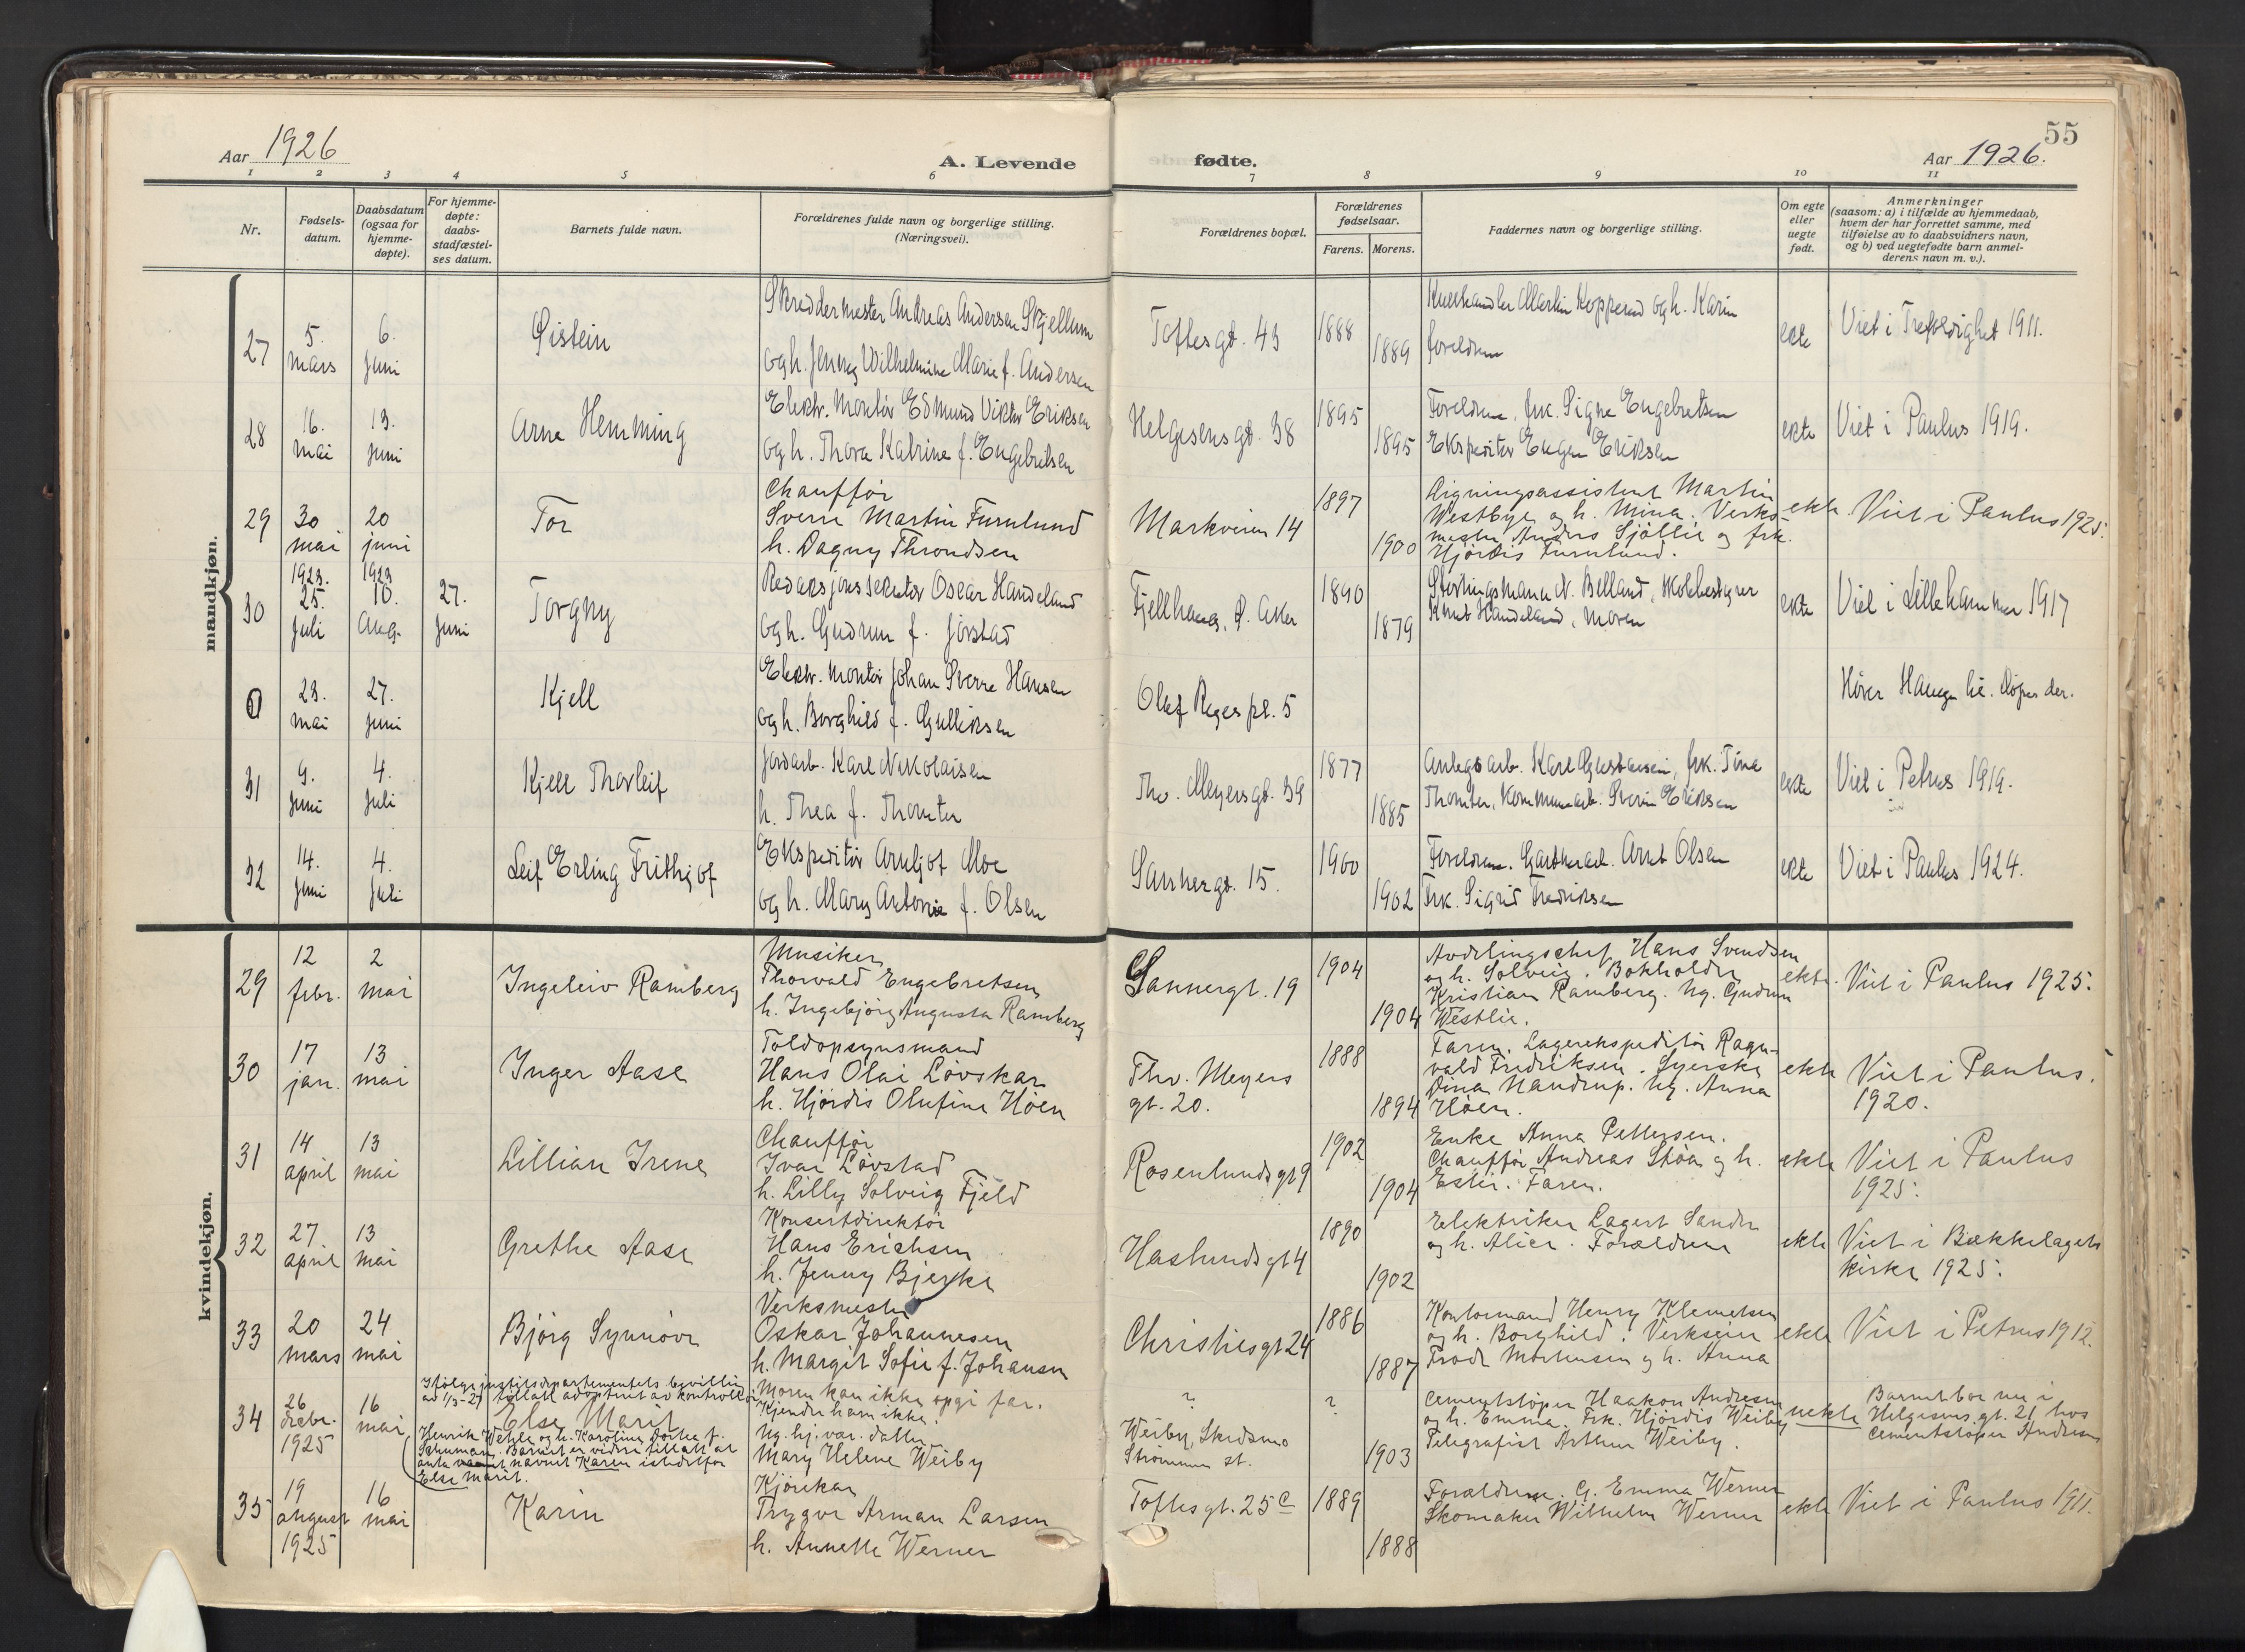 Aar 1926
A. Levende
fødte.
55
Aar 1926.
1 2 3 4 5 6 7 8 9 10 11
Nr.
Fødsels-
datum.
Daabsdatum
(ogsaa for
hjemme-
døpte).
For hjemme-
døpte:
daabs-
stadfæstel-
ses datum.
Barnets fulde navn.
Forældrenes fulde navn og borgerlige stilling.
(Næringsvei).
Forældrenes bopæl.
Forældrenes
fødselsaar.
Farens. Morens.
Faddernes navn og borgerlige stilling.
Om egte
eller
uegte
født.
Anmerkninger
(saasom: a) i tilfælde av hjemmedaab,
hvem der har forrettet samme, med
tilføielse av to daabsvidners navn,
og b) ved uegtefødte barn anmel-
derens navn m. v.).
mandkjøn.
27
5.
mars
6.
juni
Øistein
Skreddermester Andreas Andersen Skjellum
og h. Jenny Wilhelmine Marie f. Andersen
Toftesgt. 43
1888
1889
Kullhandler Martin Kopperud og h. Karin
foreldrene
ekte
Viet i Trefoldighet 1911.
28
16.
mai
13.
juni
Arne Hemming
Elektr. montör Edmund Viktor Eriksen
og h. Thora Katrine f. Engebretsen
Helgesensgt. 38
1895
1895
Foreldrene, frk. Signe Engebretsen
Ekspeditör Eugen Eriksen
ekte
Viet i Paulus 1919.
29
30
mai
20
juni
Tor
Chauffør
Sverre Martin Furulund
h. Dagny Throndsen
Markveien 14
1897
1900
Ligningsassistent Martin
Westbye og h. Mina. Verks-
mester Anders Sjöllie og frk.
Hjördis Furulund.
ekte.
Viet i Paulus 1925.
30
1923.
25.
juli
1923
10.
Aug.
27.
juni
Torgny
Redaksjonssekretær Oscar Handeland
og h. Gudrun f. Jørstad
Fjellhaug, Ø. Aker
1890
1879
Stortingsmann N. Belland, skolebestyrer
Knut Handeland, moren
ekte
Viet i Lillehammer 1917
0
23.
mai
27.
juni
Kjell
Elektr. montör Johan Sverre Hansen
og h. Borghild f. Gulliksen
Olaf Ryes pl. 5
Hører Hauge til. Døpes der.
31
9.
juni
4.
juli
Kjell Thorleif
Jordarb. Karl Nikolaisen
h. Thea f. Thomter
Thv. Meyersgt. 39
1877
1885
Anlegsarb. Karl Gustavsen, frk. Tina
Thomter, Kommunearb. Sverin Eriksen
ekte
Viet i Petrus 1919.
32
14.
juni
4.
juli
Leif Erling Frithjof
Ekspeditör Arnljot Moe
og h. Mary Antonie f. Olsen
Sannergt. 15.
1900
1902
Foreldrene. Gartnerarb. Arnt Olsen
Frk. Sigrid Fredriksen
ekte
Viet i Paulus 1924.
kvindekjøn.
29
12
febr.
2
mai
Ingeleiv Ramberg
Musiker
Thorvald Engebretsen
h. Ingebjörg Augusta Ramberg
Sannergt. 19
1904
1904
Avdelingschef Hans Svendsen
og h. Solveig. Bokholder
Kristian Ramberg. Ug. Gudrun
Westlie.
ekte.
Viet i Paulus 1925.
30
17
jan.
13
mai
Inger Aase
Toldopsynsmand
Hans Olai Lövskar
h. Hjördis Olufine Höen
Thv. Meyers
gt. 20.
1888
1894
Faren. Lagerekspeditör Ragn-
vald Fredriksen. Syerske
Dina Nandrup. Ug. Anna
Höen.
ekte
Viet i Paulus.
1920.
31
14
april
13
mai
Lillian Irene
Chauffør
Ivar Lövstad
h. Lilly Solveig Fjeld
Rosenlundsgt 9
1902
1904
Enke Anna Pettersen.
Chauffør Andreas Stöa og h.
Ester. Faren.
ekte
Viet i Paulus
1925.
32
27
april
13
mai
Grethe Aase
Konsertdirektör
Hans Erichsen
h. Jenny Bjerke
Haslundsgt 4
1890
1902
Elektriker Lagert Sander
og h. Alice. Forældrene
ekte
Viet i Bækkelagets
kirke 1925.
33
20
mars
24
mai
Björg Synnöve
Verksmester
Oskar Johannesen
h. Margit Sofie f. Johansen
Christiesgt 24
1886
1887
Kontormand Henry Klemetsen
og h. Borghild. Verkseier
Frode Mortensen og h. Anna
ekte
Viet i Petrus 1912.
34
26
decbr.
1925
16
mai
Ifølge justitsdepartementets bevilling
av 1/3-27 tillatt adoptert av kontrollør
Else Marit
Henrik Wehle og h. Karoline Dorthea f.
Schuman. Barnet er videre tillatt at
anta navnet Karen istedetfor
Else Marit.
Moren kan ikke opgi far.
Kjendte ham ikke.
Ug. hj. vær. datter
Mary Helene Weiby
?
Weiby, Skedsmo
Strømmen st.
?
1903
Cementstöper Haakon Andresen
og h. Emma. Frk. Hjördis Weiby
Telegrafist Arthur Weiby.
uekte
Barnet bor nu i
Helgesens gt. 21 hos
Cementstöper Andresen
35
19
august
1925
16
mai
Karin
Kjörekar
Trygve Arman Larsen
h. Annette Werner
Toftesgt. 25 c
1889
1888
Forældrene. G. Emma Werner
Skomaker Wilhelm Werner
ekte
Viet i Paulus 1911.